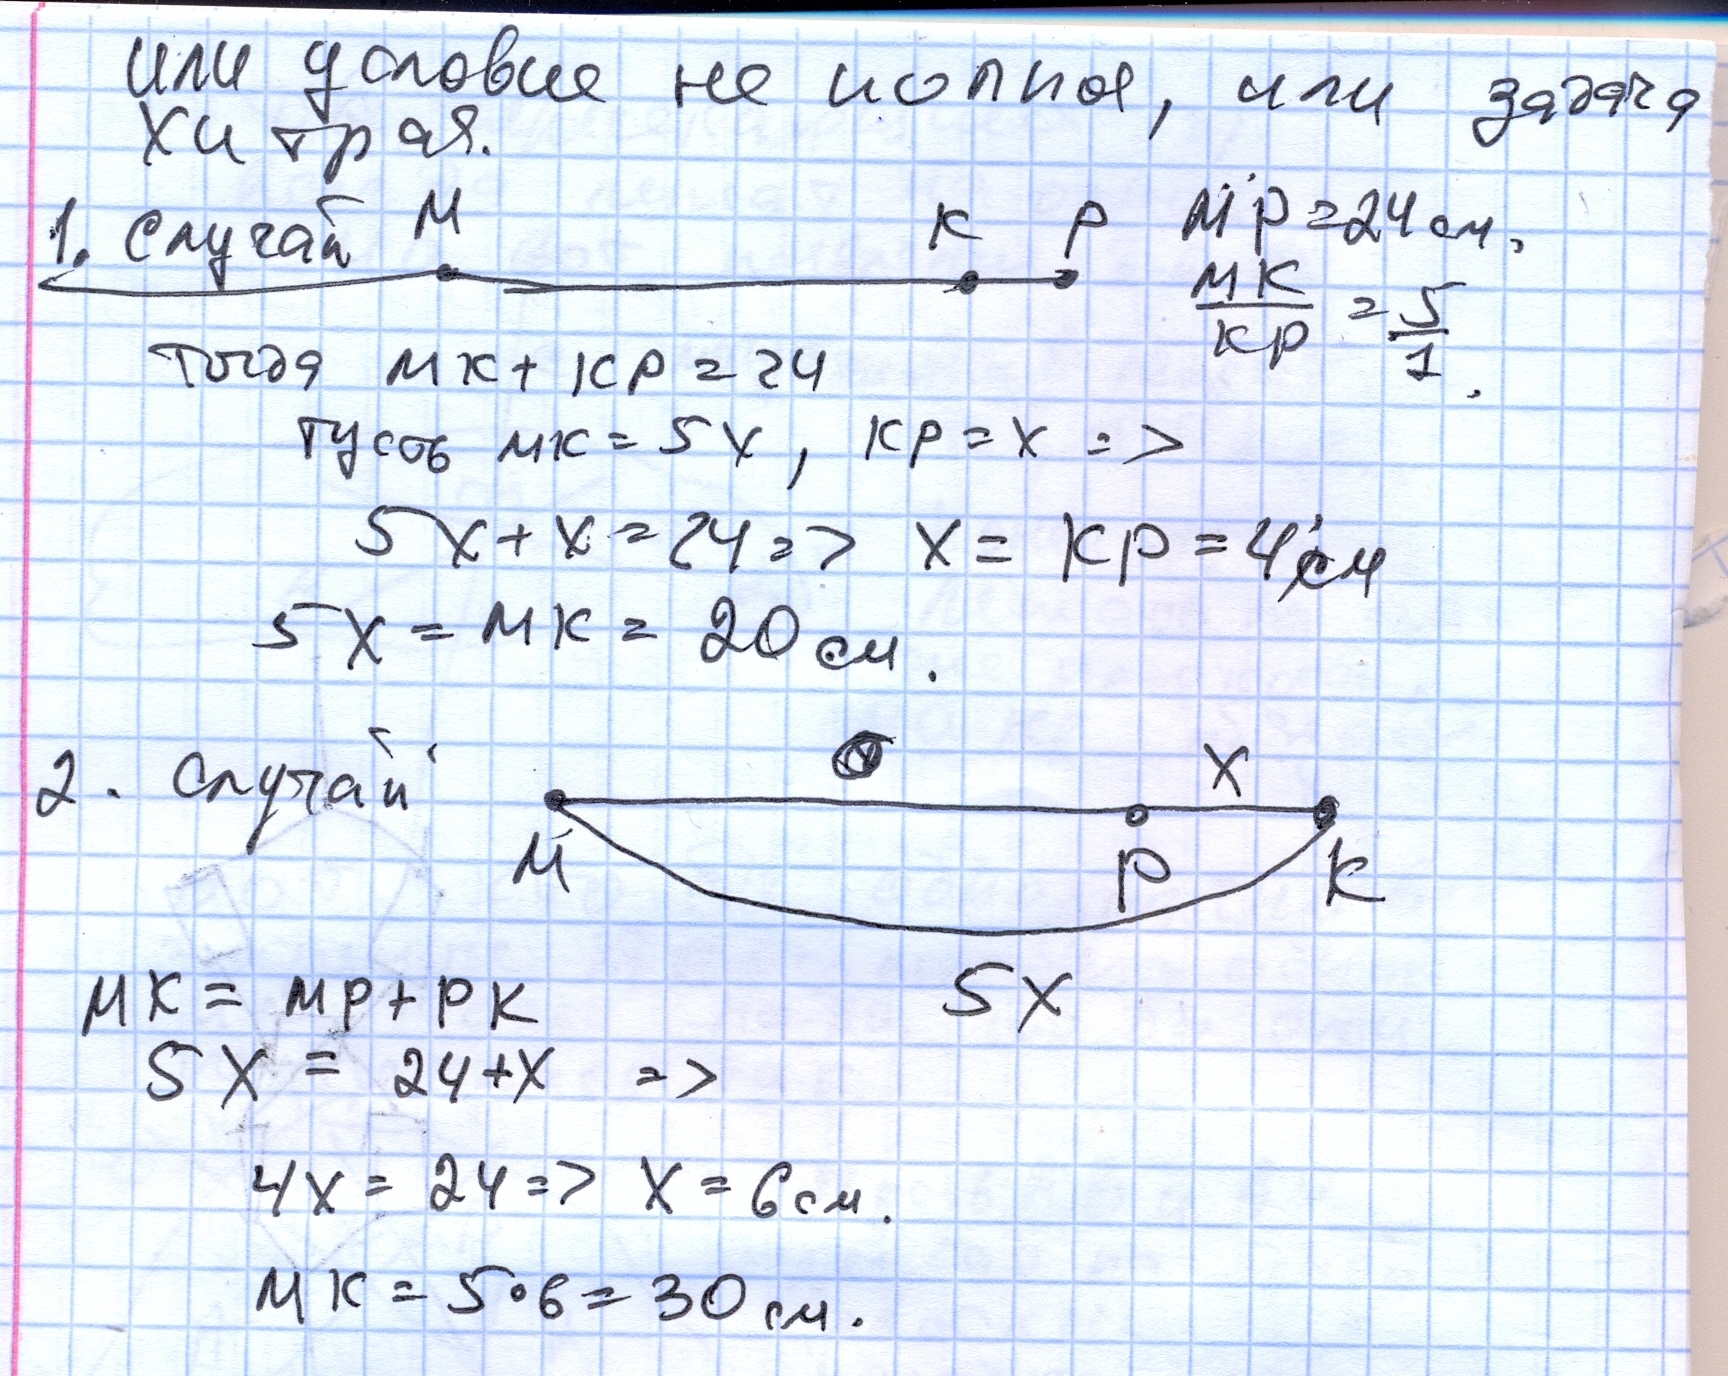 или условие не полное, или задача
хитрая.
1. Случай M K P MP = 24 см.
MK/KP = 5/1.
тогда MK + KP = 24
пусть MK = 5x, KP = x =>
5x + x = 24 => x = KP = 4 см
5x = MK = 20 см.
2. Случай x
M P K
5x
MK = MP + PK
5x = 24 + x =>
4x = 24 => x = 6 см.
MK = 5·6 = 30 см.